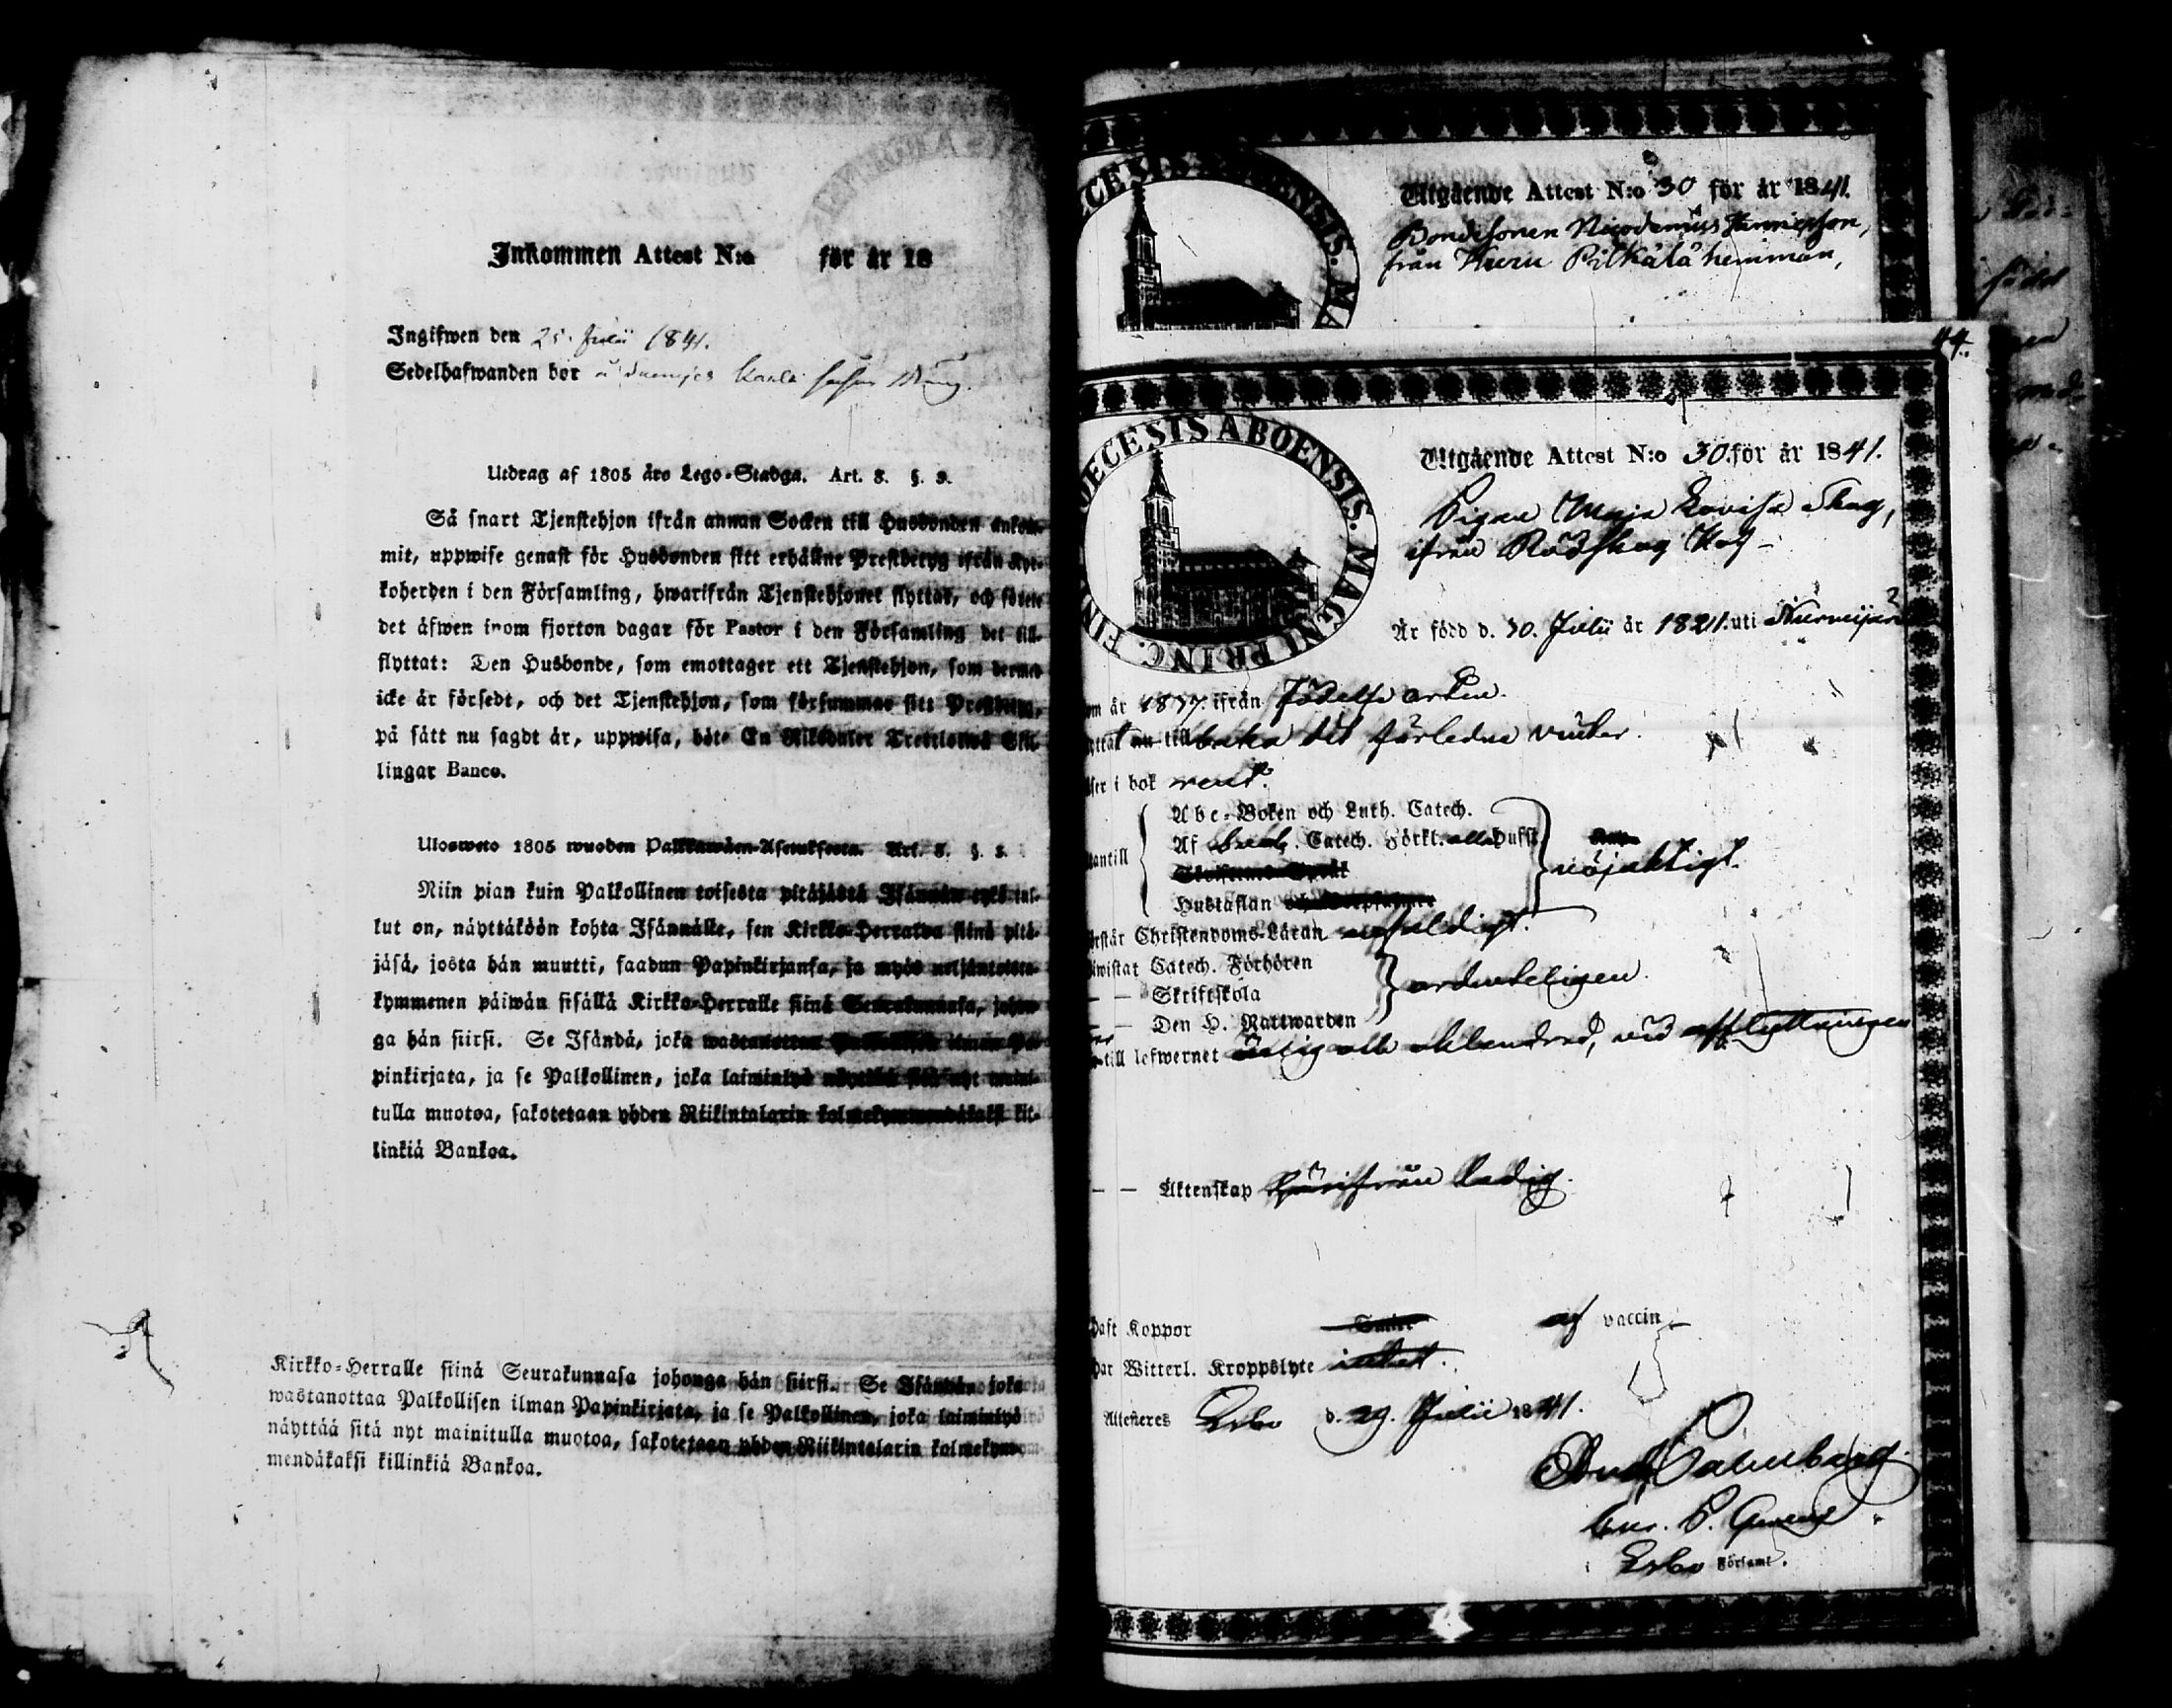 Inkommen Attest N:o för år 18
Ingifwen den 25. Julii 1841.
Sedelhafwanden bor å
Utdrag af 1805 års Lego-Stadga. Art. 8. §. 3.
Så snart Tjenstehjon ifrån annan Socken till Husbonden ankom-
mit, uppwise genast för Husbonden sitt erhållne Prestbetyg ifrån Kyr-
koherden i den Församling, hwarifrån Tjenstehjonet flyttat, och sedan
det äfwen inom fjorton dagar för Pastor i den Församling det till-
flyttat: Den Husbonde, som emottager ett Tjenstehjon, som dermed
icke är försedt, och det Tjenstehjon, som försummar sitt Prestbetyg,
på sätt nu sagdt är, uppwisa, böte En Riksdaler Trettiotwå Skil-
lingar Banco.
Ulosweto 1805 wuoden Palkkawäen-Asetuksesta. Art. 8. §. 3.
Niin pian kuin Palkollinen toisesta pitäjästä Isännän tykö tul-
lut on, näyttäköön kohta Isännälle, sen Kirkko-Herralda siinä pitä-
jäsä, josta hän muutti, saadun Papinkirjansa, ja myös neljäntoista-
kymmenen päiwän sisällä Kirkko-Herralle siinä Seurakunnasa, johon-
ga hän siirsi. Se Isändä, joka wastanottaa Palkollisen ilman Pa-
pinkirjata, ja se Palkollinen, joka laiminlyö näyttää sitä nyt maini-
tulla muotoa, sakotetaan yhden Riikintalarin kolmekymmendäkaksi kil-
linkiä Bankoa.
Kirkko-Herralle siinä Seurakunnasa johonga hän siirsi. Se Isändä, joka
wastanottaa Palkollisen ilman Papinkirjata, ja se Palkollinen, joka laiminlyö
näyttää sitä nyt mainitulla muotoa, sakotetaan yhden Riikintalarin kolmekym-
mendäkaksi killinkiä Bankoa.
ECESIS ABOENSIS. MA
Utgående Attest N:o 30 för år 1841.
Bondesonen Nicodemus
från Pitkälä hemman,
44.
DECESIS ABOENSIS. MAGNI PRINC. FIN
Utgående Attest N:o 30. för år 1841.
Pigan Maja Lovisa Skog,
ifrån Rödskog
Är född d. 30. Julii år 1821. uti Nurmijärvi
om år 1837. ifrån Födelse orten.
yttat nu till baka det förledne vinter.
äser i bok rent.
Abc-Boken och Luth. Catech.
utantill Af Sveb. Catech. Förkl. alla Hufst.
Skriftens Språk
nöjaktigt.
Hustaflan
örstår Christendoms-Läran nöjaktigt.
iwistat Catech. Förhören
— — Skriftskola
ordenteligen.
— — Den H. Nattwarden
till lefwernet ärlig och oklandrad, vid afflyttningen
— — Äktenskap härifrån ledig.
haft Koppor af vaccin
har Witterl. Kroppslyte intet.
Attesteres Esbo d. 29. Julii 1841.
i Esbo Församl.